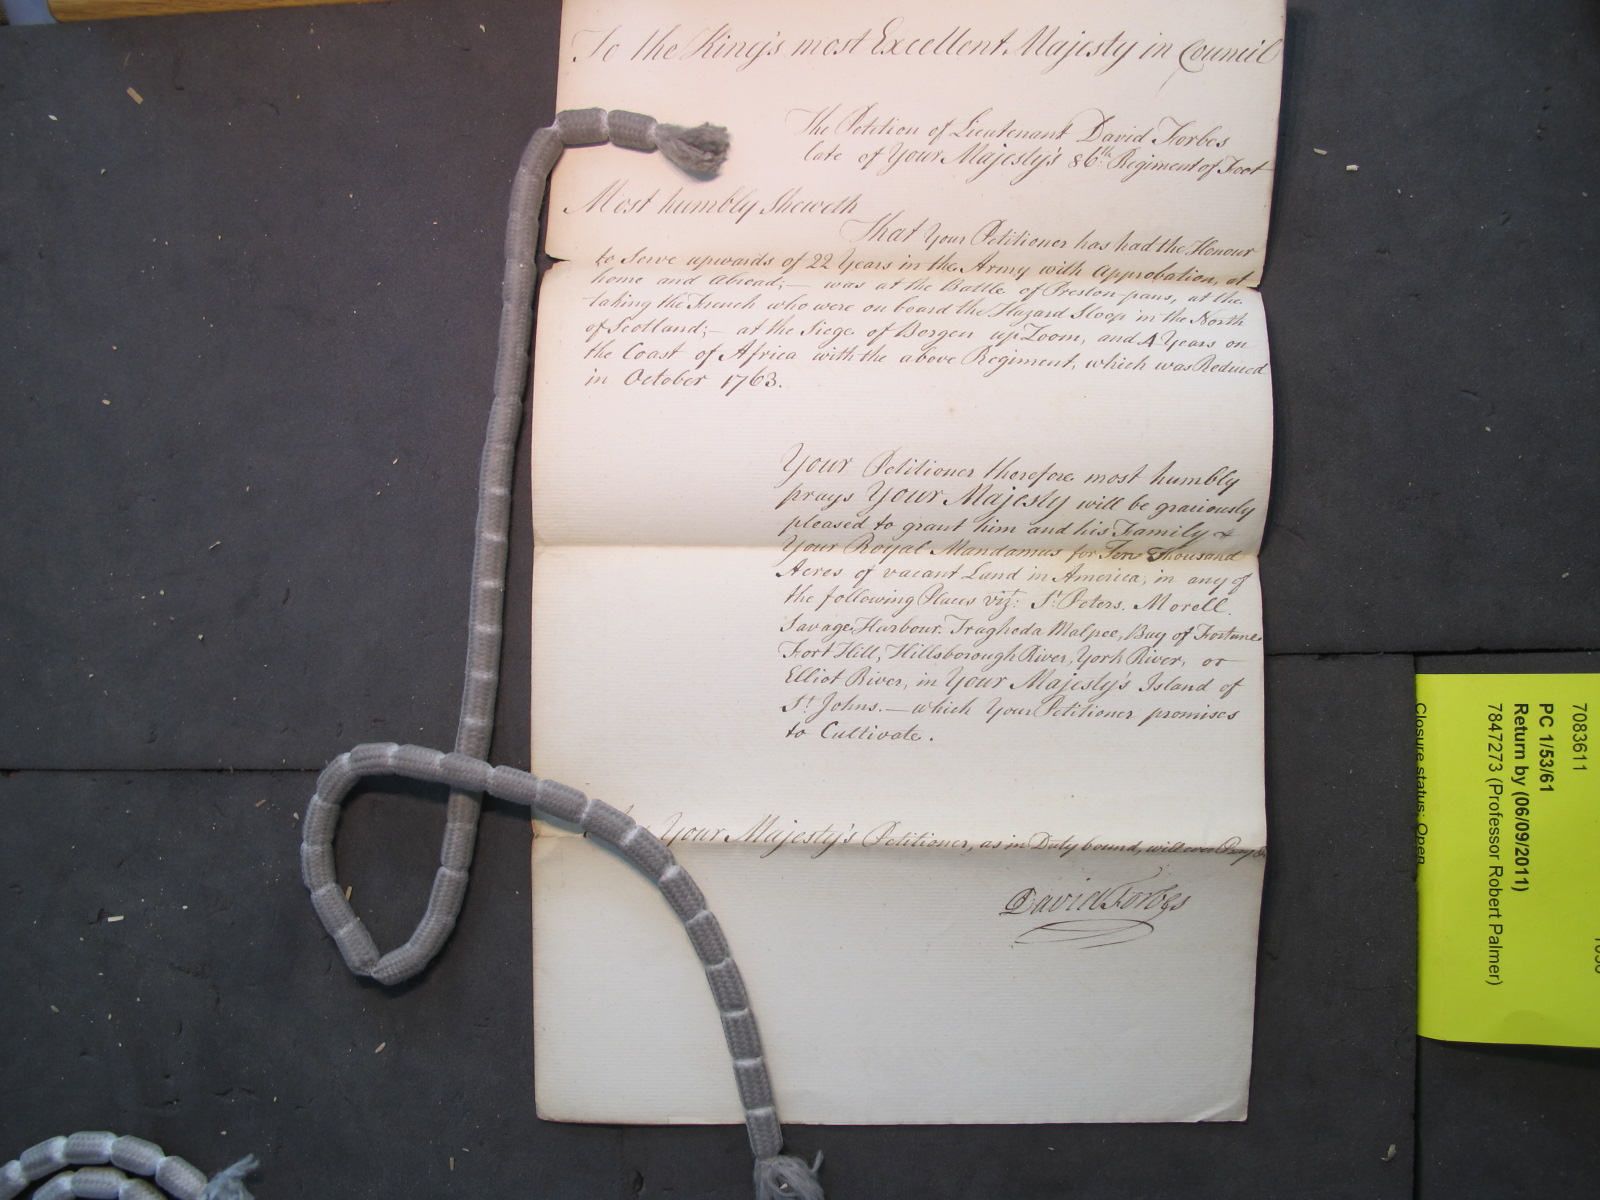 To the King's most Excellent Majesty in Council
The Petition of Lieutenant David Forbes
late of Your Majesty's 86th Regiment of Foot
Most humbly Sheweth
That Your Petitioner has had the Honour
to Serve upwards of 22 Years in the Army with Approbation, at
home and Abroad;— was at the Battle of Preston-pans, at the
taking the French who were on board the Hazard Sloop in the North
of Scotland;— at the Siege of Bergen up Zoom, and 4 Years on
the Coast of Africa with the above Regiment, which was Reduced
in October 1763.
Your Petitioner therefore most humbly
prays Your Majesty will be graciously
pleased to grant him and his Family
Your Royal Mandamus for Ten Thousand
Acres of vacant Land in America, in any of
the following Places vizt: St. Peters. Morell.
Savage Harbour. Tragheda Malpee, Bay of Fortune
Fort Hill, Hillsborough River, York River, or
Elliot River, in Your Majesty's Island of
St. Johns.— which Your Petitioner promises
to Cultivate.
Your Majesty's Petitioner, as in Duty bound, will ever Pray &c
David Forbes
7083611
PC 1/53/61
Return by (06/09/2011)
7847273 (Professor Robert Palmer)
Closure status: Open